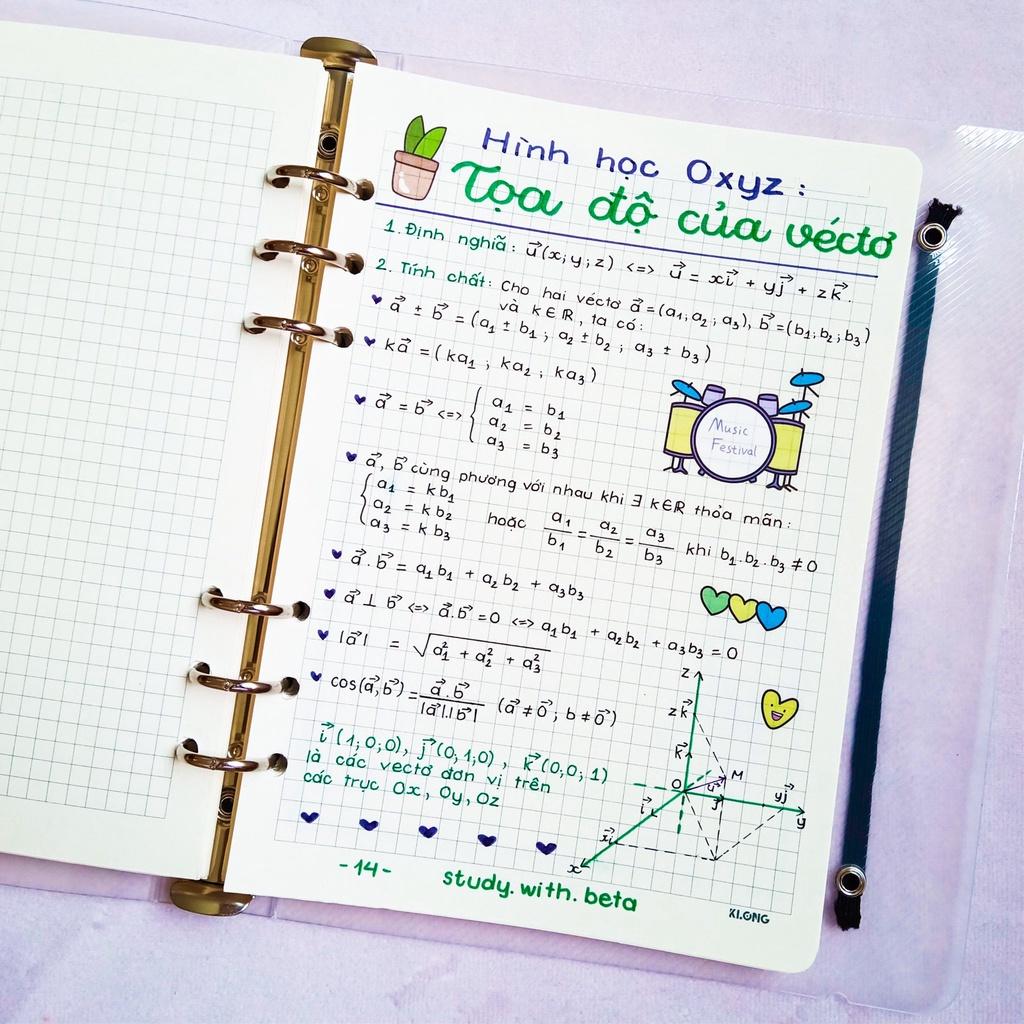 Hình học Oxyz:
Tọa độ của véctơ
1. Định nghiã: u⃗(x; y; z) <=> u⃗ = xi⃗ + yj⃗ + zk⃗.
2. Tính chất: Cho hai véctơ a⃗ = (a₁; a₂; a₃), b⃗ = (b₁; b₂; b₃)
và k ∈ ℝ, ta có:
a⃗ ± b⃗ = (a₁ ± b₁; a₂ ± b₂; a₃ ± b₃)
ka⃗ = (ka₁; ka₂; ka₃)
a⃗ = b⃗ <=> { a₁ = b₁
a₂ = b₂
a₃ = b₃
Music
Festival
a⃗, b⃗ cùng phương với nhau khi ∃ k ∈ ℝ thỏa mãn:
{ a₁ = kb₁
a₂ = kb₂
a₃ = kb₃
hoặc a₁/b₁ = a₂/b₂ = a₃/b₃ khi b₁.b₂.b₃ ≠ 0
a⃗.b⃗ = a₁b₁ + a₂b₂ + a₃b₃
a⃗ ⊥ b⃗ <=> a⃗.b⃗ = 0 <=> a₁b₁ + a₂b₂ + a₃b₃ = 0
|a⃗| = √(a₁² + a₂² + a₃²)
cos(a⃗, b⃗) = a⃗.b⃗/|a⃗|.|b⃗| (a⃗ ≠ 0⃗; b ≠ 0⃗)
i⃗(1; 0; 0), j⃗(0; 1; 0), k⃗(0; 0; 1)
là các vectơ đơn vị trên
các trục Ox, Oy, Oz
z
zk⃗
k⃗
M
O
u⃗
j⃗
yj⃗
y
i⃗
xi⃗
x
-14-
study.with.beta
KLONG